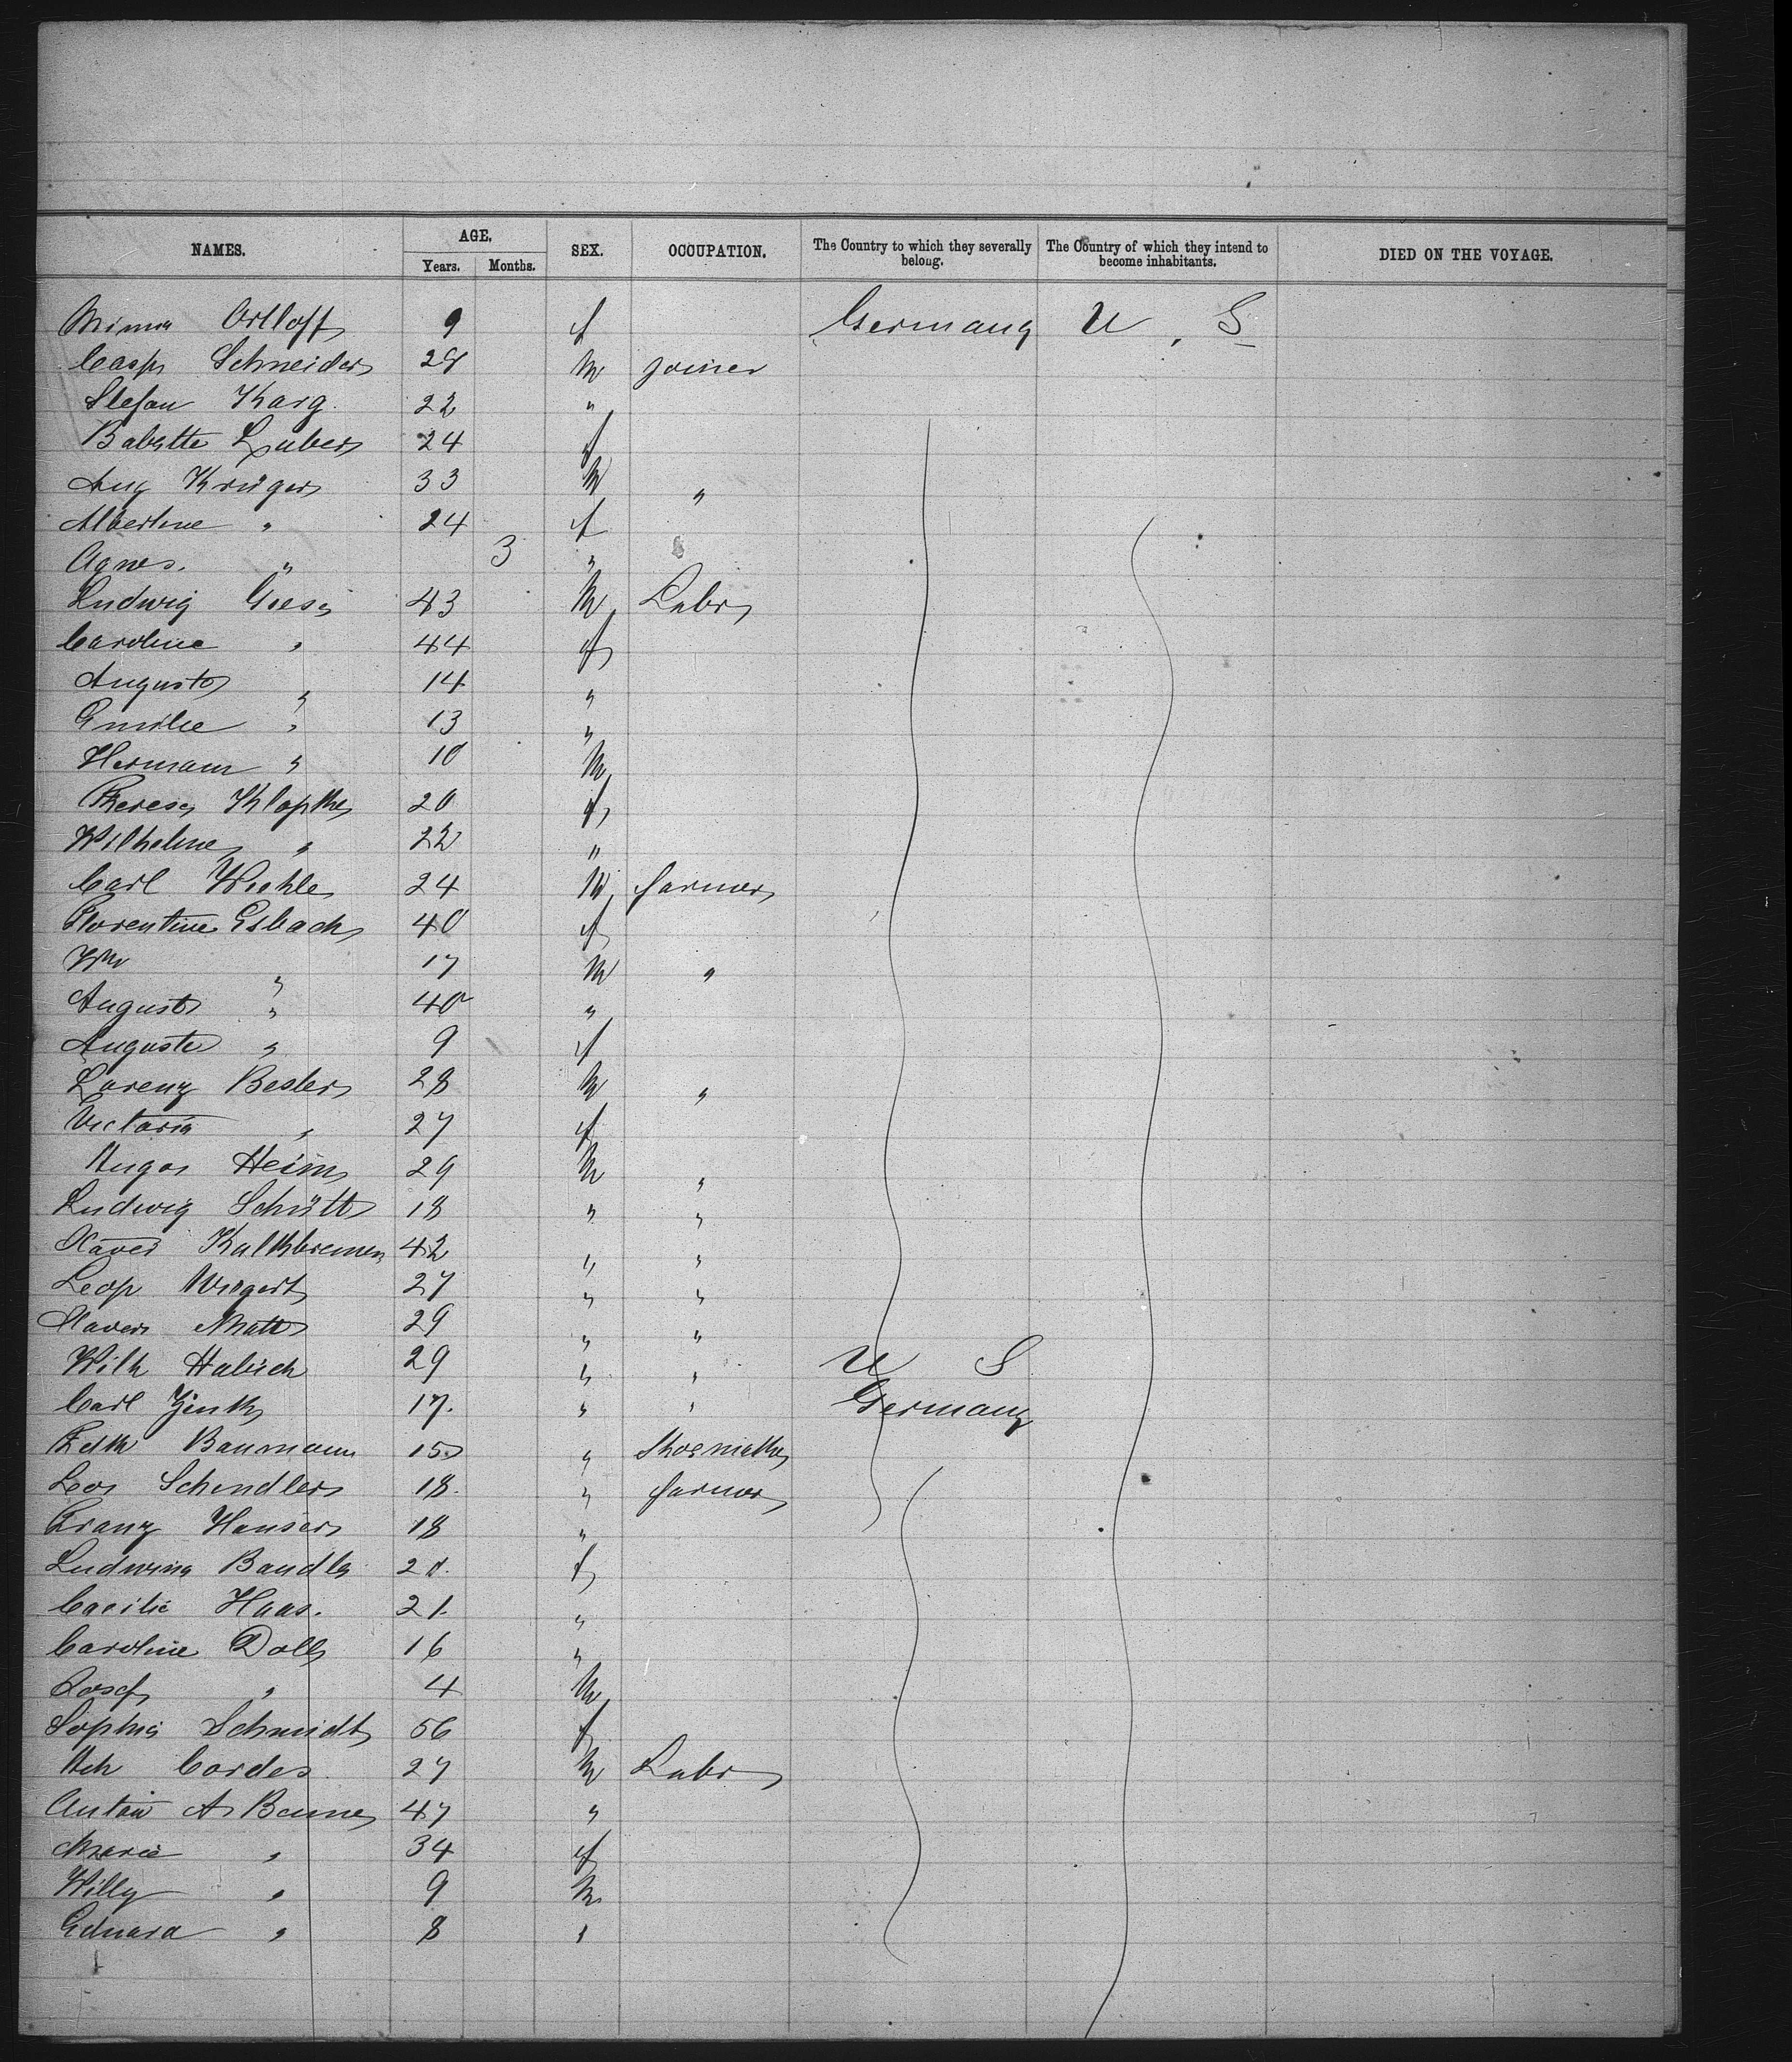 NAMES. AGE. SEX. OCCUPATION. The Country to which they severally belong. The Country of which they intend to become inhabitants. DIED ON THE VOYAGE.
Years. Months.
Minna Ortloff 9 f Germany U. S
Casp Schneider 28 M joiner
Stefan Karg. 22 "
Babette Luber 24 f
Aug Krüger 33 M "
Albertine " 24 f
Agnes. " 3 "
Ludwig Giese 43 M Labr
Caroline " 44 f
August " 14 "
Emilie " 13 "
Hermann " 10 M
Therese Klopke 20 f
Wilhelme " 22 "
Carl Wiehle 24 M farmer
Florentine Esbach 40 f
Wm " 17 M "
August " 40 "
Auguste " 9 f
Lorenz Besler 28 M "
Victoria " 27 f
Hugo Heim 29 M "
Ludwig Schütt 18 " "
Xaver Kalkbremen 42 " "
Leop Wiegert 27 " "
Xaver Matt 29 " "
Wilh Habich 29 " " U S
Carl Zink 17. " " Germany
Baumann 15 " Shoemaker
Leo Schindler 18. " farmer
Franz Hauser 18 "
Ludwina Bandle 20. f
Caecilie Haas. 21. "
Caroline Doll 16 "
Josef " 4 M
Sophie Schmidt 56 f
Hch Cordes 27 M Labr
Anton A Beume 47 "
Marie " 34 f
Willy " 9 M
Eduard " 8 "